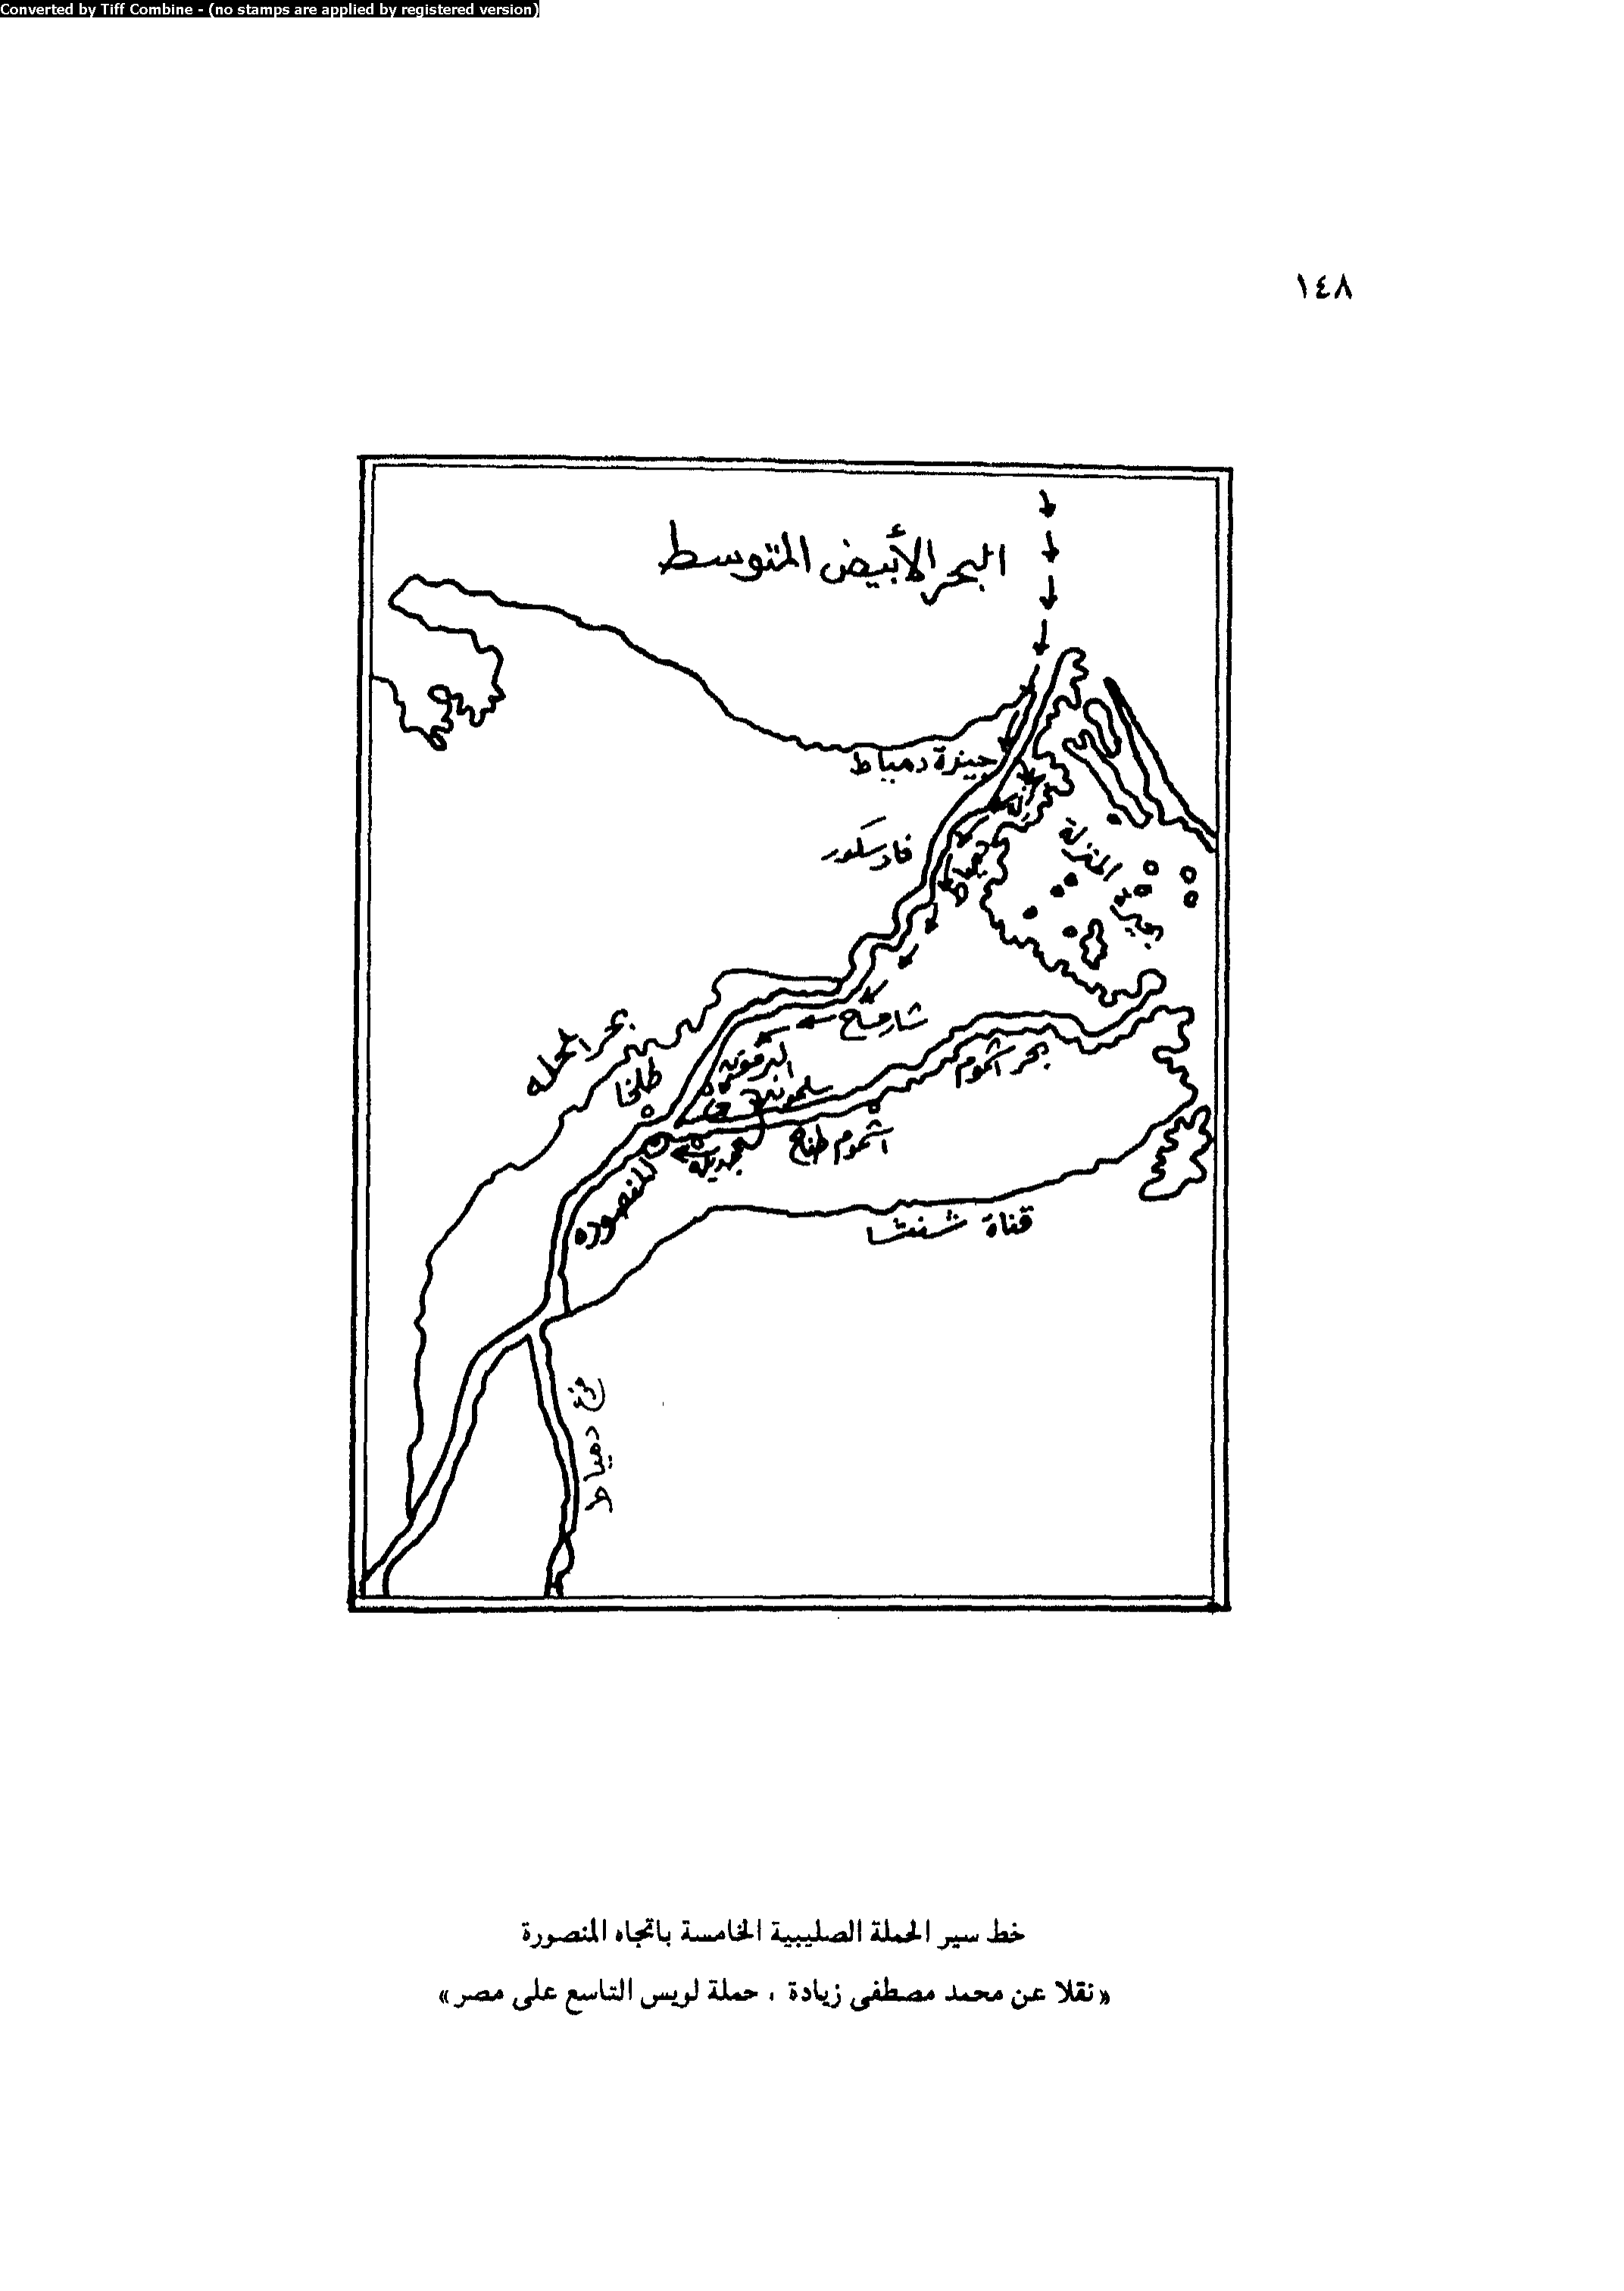 Converted by Tiff Combine - (no stamps are applied by registered version)
١٤٨
البحر الأبيض المتوسط
جيزة دمياط
فارسكور
بحيرة المنزلة
شارمساح
بحر المحلة
طلخا
البرمون
بحر أشموم
أشموم طناح
جديلة
المنصوره
قناة شنشا
فرع دمياط
خط سير الحملة الصليبية الخامسة باتجاه المنصورة
« نقلا عن محمد مصطفى زيادة ، حملة لويس التاسع على مصر »